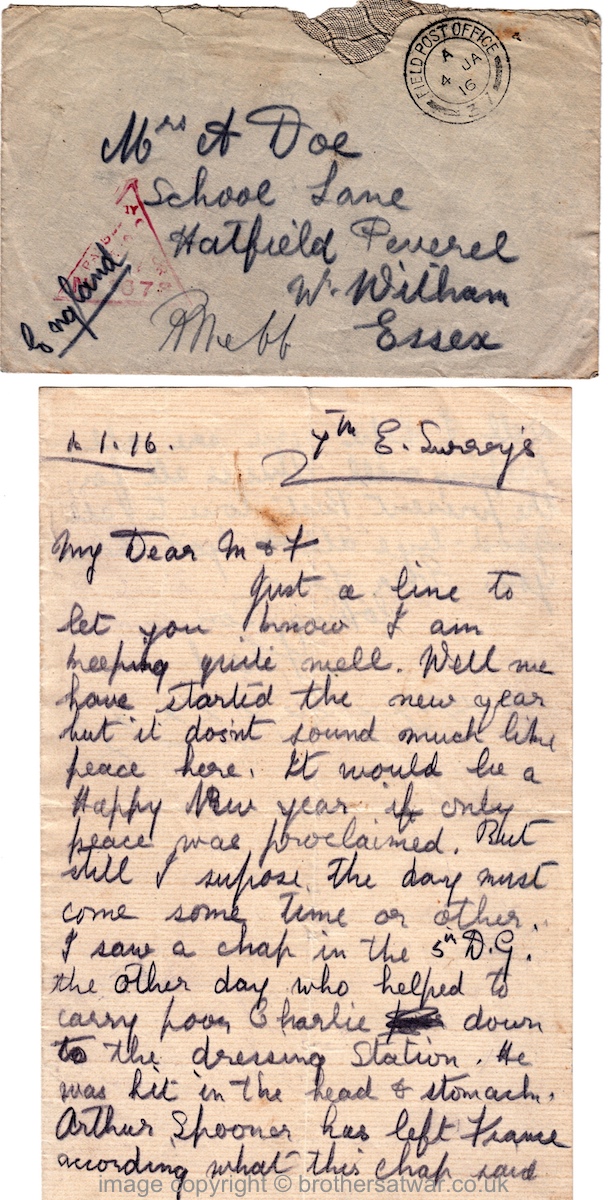 FIELD POST OFFICE
A
4 JA
16
37
Mrs A Doe
School Lane
Hatfield Peverel
Nr. Witham
Essex
England
RWebb
1.1.16. 7th E. Surrey's
My Dear M & F
Just a line to
let you know I am
keeping quite well. Well we
have started the new year
but it dosn't sound much like
peace here. It would be a
Happy New year if only
peace was proclaimed. But
still I supose the day must
come some time or other.
I saw a chap in the 5th D.G.
the other day who helped to
carry poor Charlie down
to the dressing Station. He
was hit in the head & stomach.
Arthur Spooner has left France
according what this chap said
image copyright © brothersatwar.co.uk